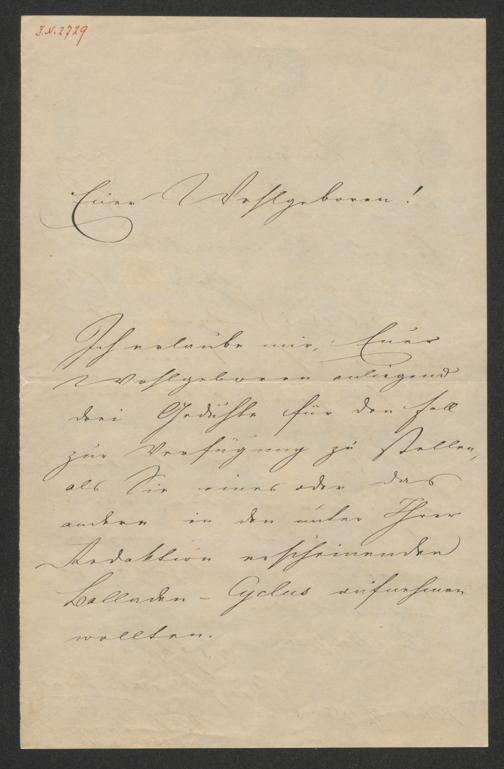 I.N. 2729
Euer Wohlgeboren!
Ich erlaube mir, Euer
Wohlgeboren anliegend
drei Gedichte für den Fall
zur Verfügung zu stellen,
als Sie eines oder das
andere in den unter Ihrer
Redaktion erscheinenden
Balladen-Cyclus aufnehmen
wollten.